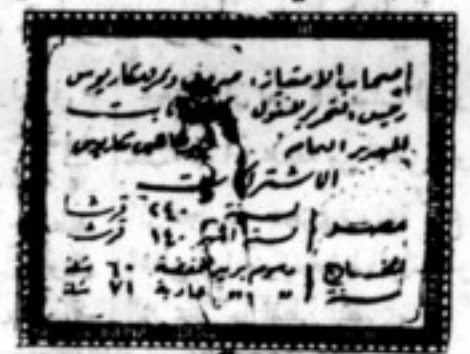 أصحاب الامتياز: صروف ونمر ومكاريوس
رئيس التحرير المسئول ثابت
المدير العام مكاريوس
الاشتراكات
مصر لسنة ٢٤٠ قرشا
لستة أشهر ١٤٠ قرشا
الخارج رسوم بريد مخفضة ٦٠ شلنا
لسنة " " عادية ٧١ شلنا